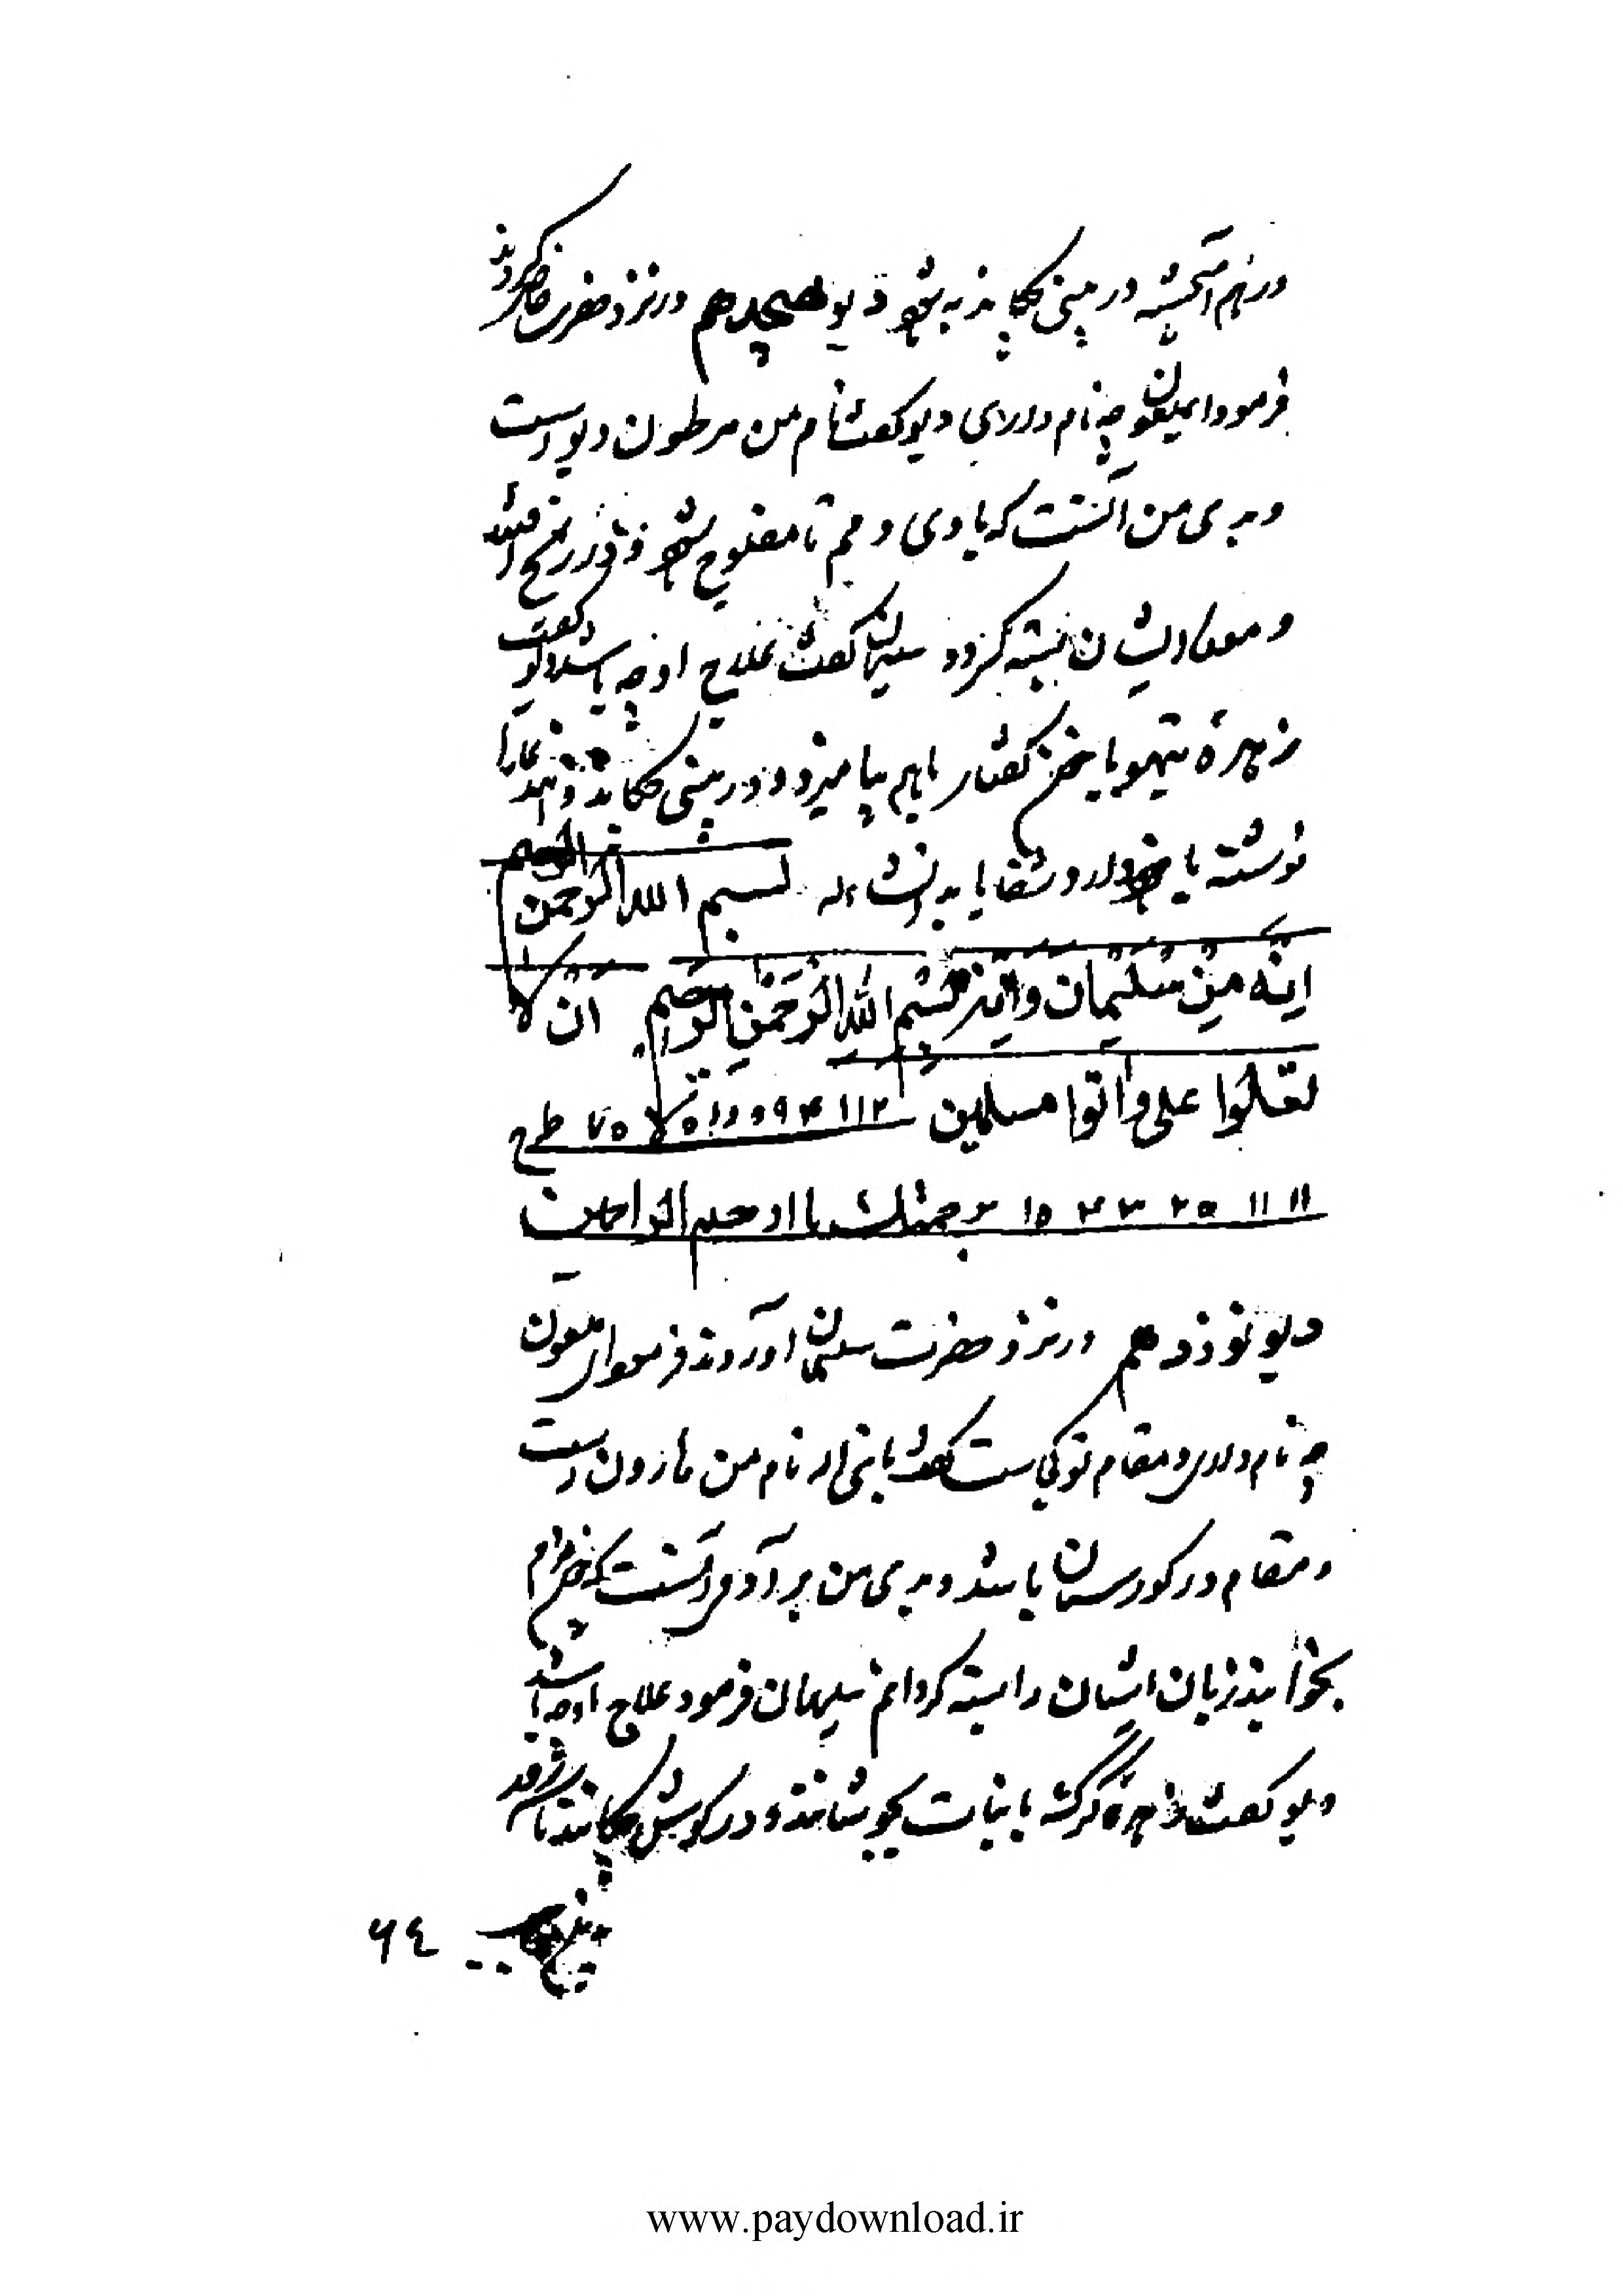 در هم آمیخته در بینی چکاند به شود دیو هیجدهم در نزد حضرت حاضر کردند
فرمود ای ملعون چه نام داری دیو گفت نام من مرطون دیو است
و بدی من آنست که بادی دمم تا مفلوج شود و در رنج افتد
و معاد ایشان بسته گردد سلیمان گفت علاج او چه باشد دیو گفت
زهره تیهو با مغز کفتار باهم بیامیزد و در بینی چکاند و این دعا را
نوشته با خود دارد شفا یابد انشاءاله بسم الله الرحمن الرحیم
انه من سلیمان وانه بسم الله الرحمن الرحیم ان لا
تعلوا علی واتوا مسلمین ۱۱۲
۱۱ ۱۱ ۲۵ ۱۵ برحمتک یا ارحم الراحمین
دیو نوزدهم در نزد حضرت سلیمان آوردند فرمود ای ملعون
چه نام داری و مقام تو کجاست گفت یا نبی اله نام من مازون است
و مقام در گورستان باشد و بدی من بر آدم آنست که چون مردم
بخوابند زبان ایشان را بسته گردانم سلیمان فرمود علاج او چه باشد
دیو گفت زهره گرگ با نبات بجوشانند و در گوش چکانند تا
۶۴
www.paydownload.ir